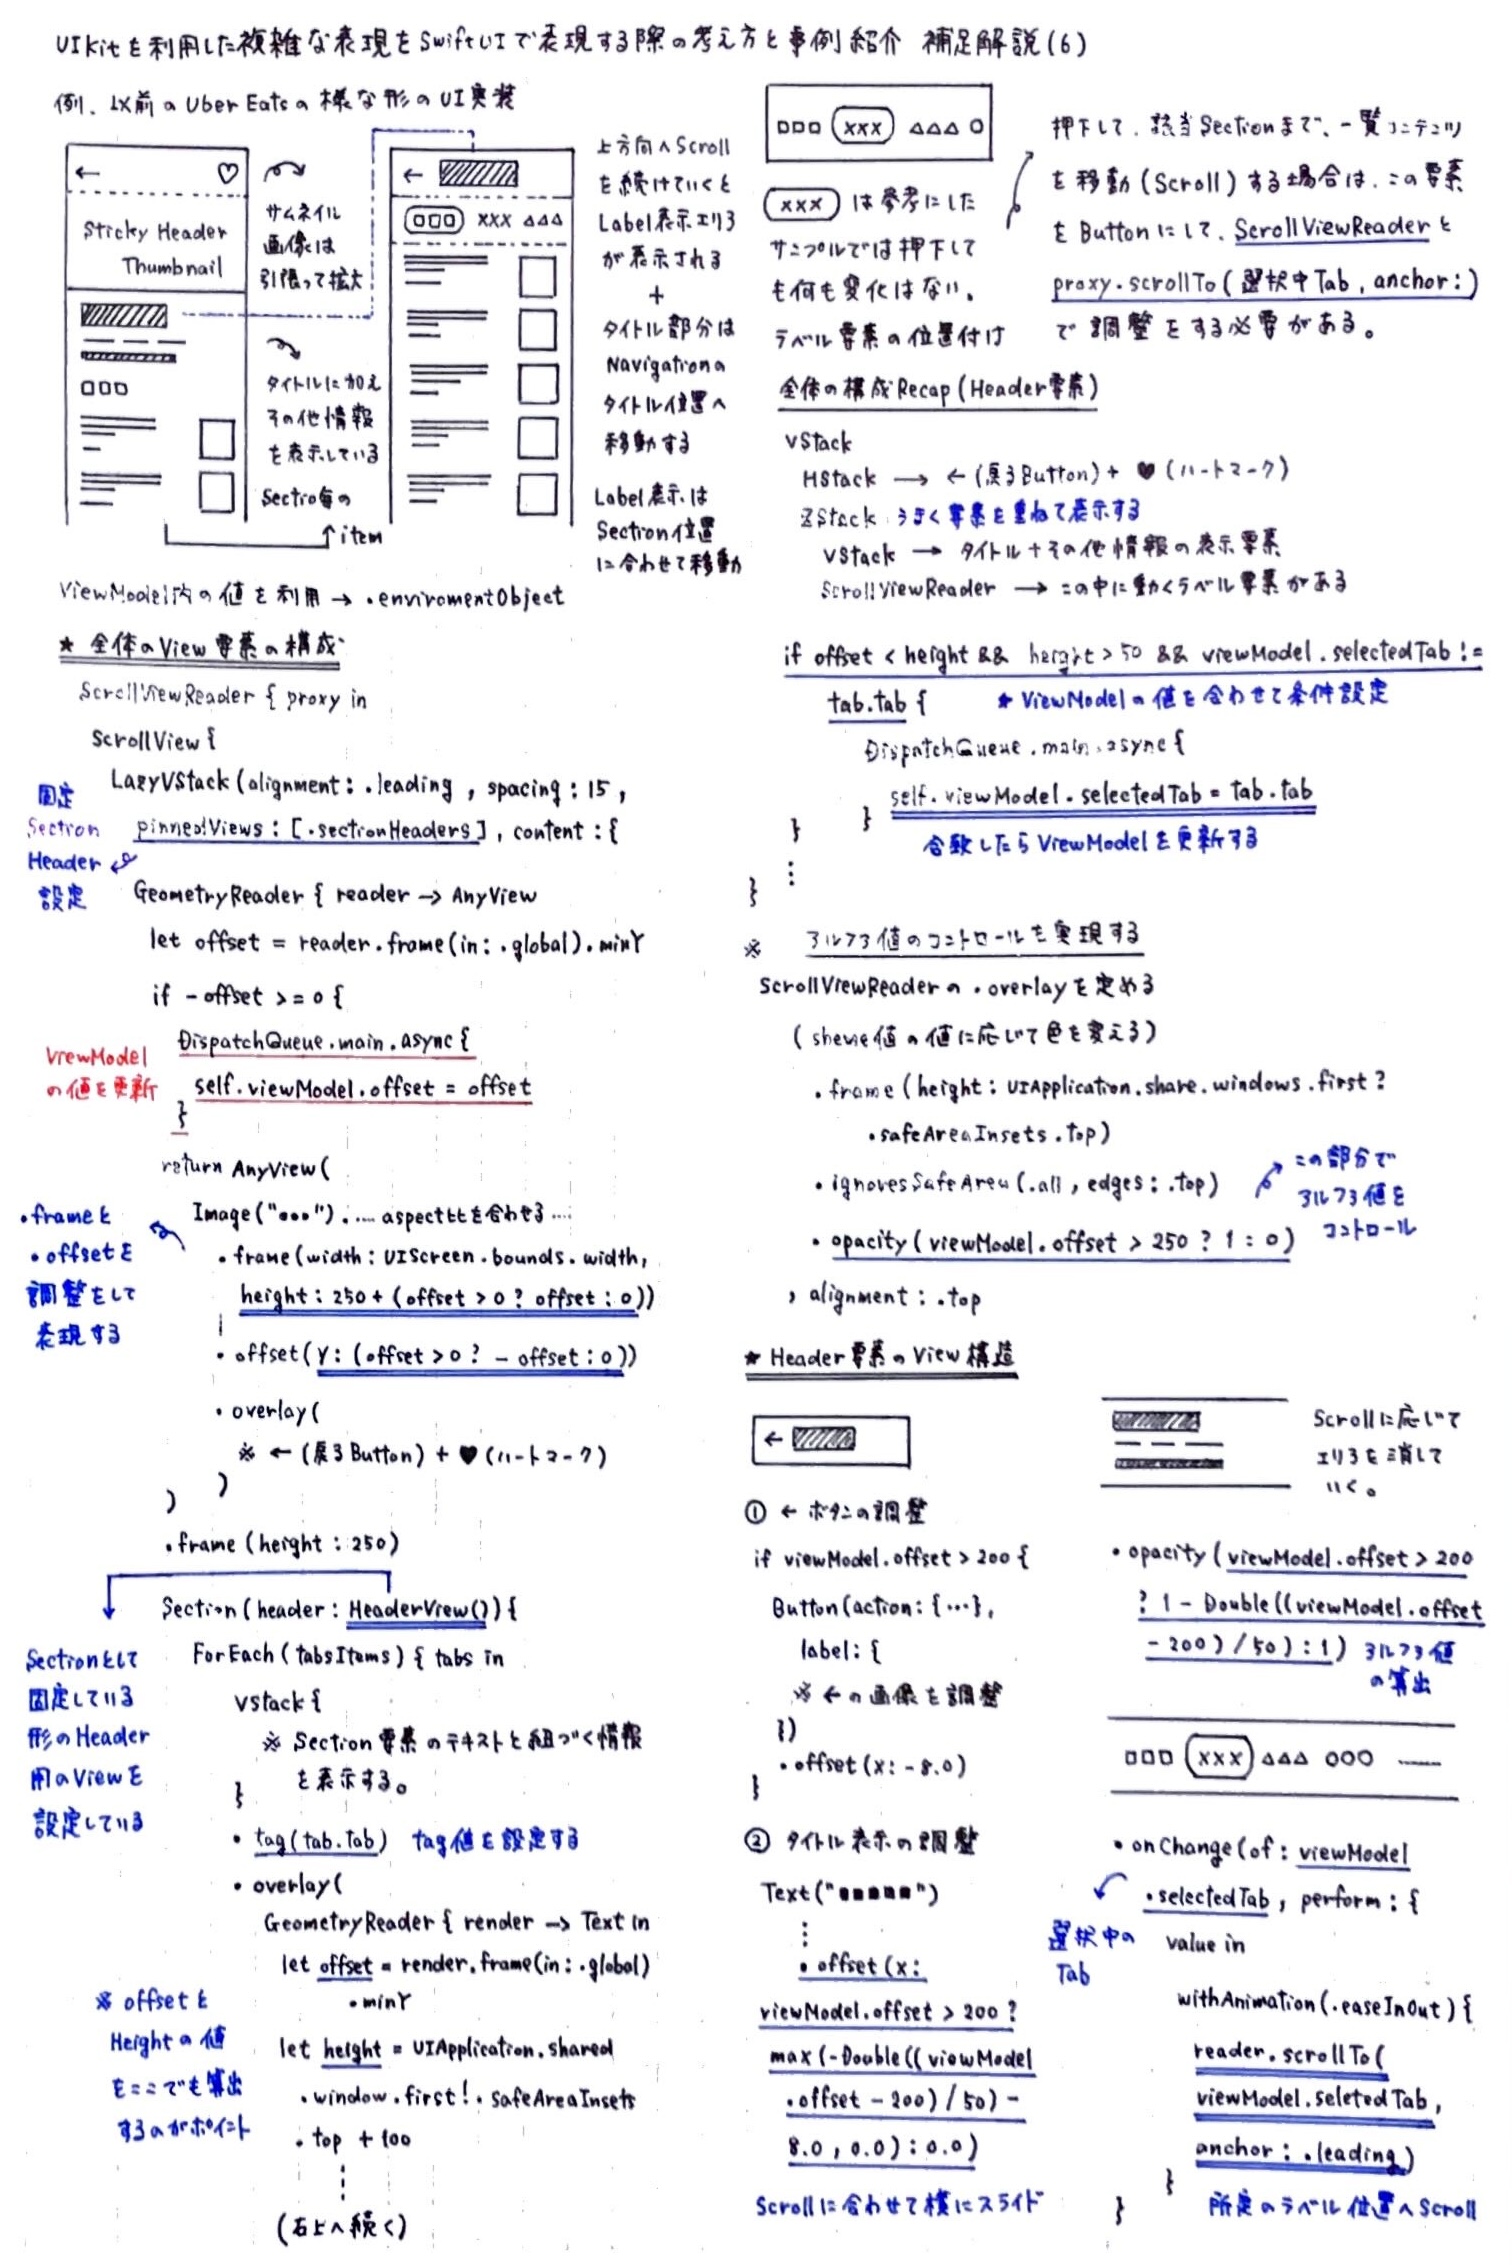 UIKitを利用した複雑な表現をSwiftUIで表現する際の考え方と事例紹介 補足解説(6)
例. 以前のUber Eatsの様な形のUI実装
← ♡
Sticky Header
Thumbnail
□□□
サムネイル
画像は
引張って拡大
タイトルに加え
その他情報
を表示している
Sectio毎の
↑item
←
□□□ xxx △△△
上方向へScroll
を続けていくと
Label表示エリア
が表示される
+
タイトル部分は
Navigationの
タイトル位置へ
移動する
Label表示は
Section位置
に合わせて移動
ViewModel内の値を利用 → .enviromentObject
★ 全体のView要素の構成
ScrollViewReader { proxy in
ScrollView {
LazyVStack(alignment: .leading , spacing : 15 ,
pinnedViews : [ .sectionHeaders ] , content : {
固定
Section
Header
設定
GeometryReader { reader → AnyView
let offset = reader.frame(in: .global).minY
if - offset >= 0 {
DispatchQueue.main.async {
self.viewModel.offset = offset
}
ViewModel
の値を更新
return AnyView(
Image("●●●") . .... aspect比を合わせる ....
.frame(width : UIScreen.bounds.width,
height : 250 + (offset > 0 ? offset : 0))
.offset(Y : (offset > 0 ? - offset : 0))
.frameと
.offsetを
調整をして
表現する
.overlay(
※ ← (戻るButton) + ♥ (ハートマーク)
)
)
.frame (height : 250)
Section (header : HeaderView()) {
ForEach (tabsItems) { tabs in
VStack {
※ Section要素のテキストと紐づく情報
を表示する。
}
Sectionとして
固定している
形のHeader
用のViewを
設定している
.tag(tab.tab) tag値を設定する
.overlay(
GeometryReader { render → Text in
let offset = render.frame(in: .global)
.minY
let height = UIApplication.shared
.window.first!.safeAreaInsets
.top + 100
※ offsetと
Heightの値
をここでも算出
するのがポイント
(右上へ続く)
□□□ xxx △△△ ○
xxx は参考にした
サンプルでは押下して
も何も変化はない。
ラベル要素の位置付け
押下して、該当Sectionまで、一覧コンテンツ
を移動 (Scroll) する場合は、この要素
をButtonにして、ScrollViewReaderと
proxy.scrollTo (選択中Tab , anchor : )
で調整をする必要がある。
全体の構成Recap (Header要素)
VStack
HStack → ← (戻るButton) + ♥ (ハートマーク)
ZStack うまく要素を重ねて表示する
VStack → タイトル+その他情報の表示要素
ScrollViewReader → この中に動くラベル要素がある
if offset < height && height > 50 && viewModel.selectedTab !=
tab.tab {
★ ViewModelの値を合わせて条件設定
DispatchQueue.main.async {
self.viewModel.selectedTab = tab.tab
}
}
合致したらViewModelを更新する
}
※ アルファ値のコントロールを実現する
ScrollViewReaderの.overlayを定める
(sheme値の値に応じて色を変える)
.frame (height : UIApplication.share.windows.first ?
.safeAreaInsets.top)
.ignoresSafeArea (.all , edges : .top)
.opacity (viewModel.offset > 250 ? 1 : 0)
この部分で
アルファ値を
コントロール
, alignment : .top
★ Header要素のView構造
←
① ← ボタンの調整
if viewModel.offset > 200 {
Button(action : {...},
label : {
※ ←の画像を調整
})
.offset (x : -8.0)
}
② タイトル表示の調整
Text("■■■■■")
.offset (x :
viewModel.offset > 200 ?
max (-Double((viewModel
.offset - 200) / 50) -
8.0 , 0.0) : 0.0)
Scrollに合わせて横にスライド
Scrollに応じて
エリアを消して
いく。
.opacity (viewModel.offset > 200
? 1 - Double((viewModel.offset
- 200) / 50) : 1)
アルファ値
の算出
□□□ xxx △△△ ○○○
.onChange (of : viewModel
.selectedTab , perform : {
value in
選択中の
Tab
withAnimation (.easeInOut) {
reader.scrollTo (
viewModel.seletedTab,
anchor : .leading)
}
}
所定のラベル位置へScroll